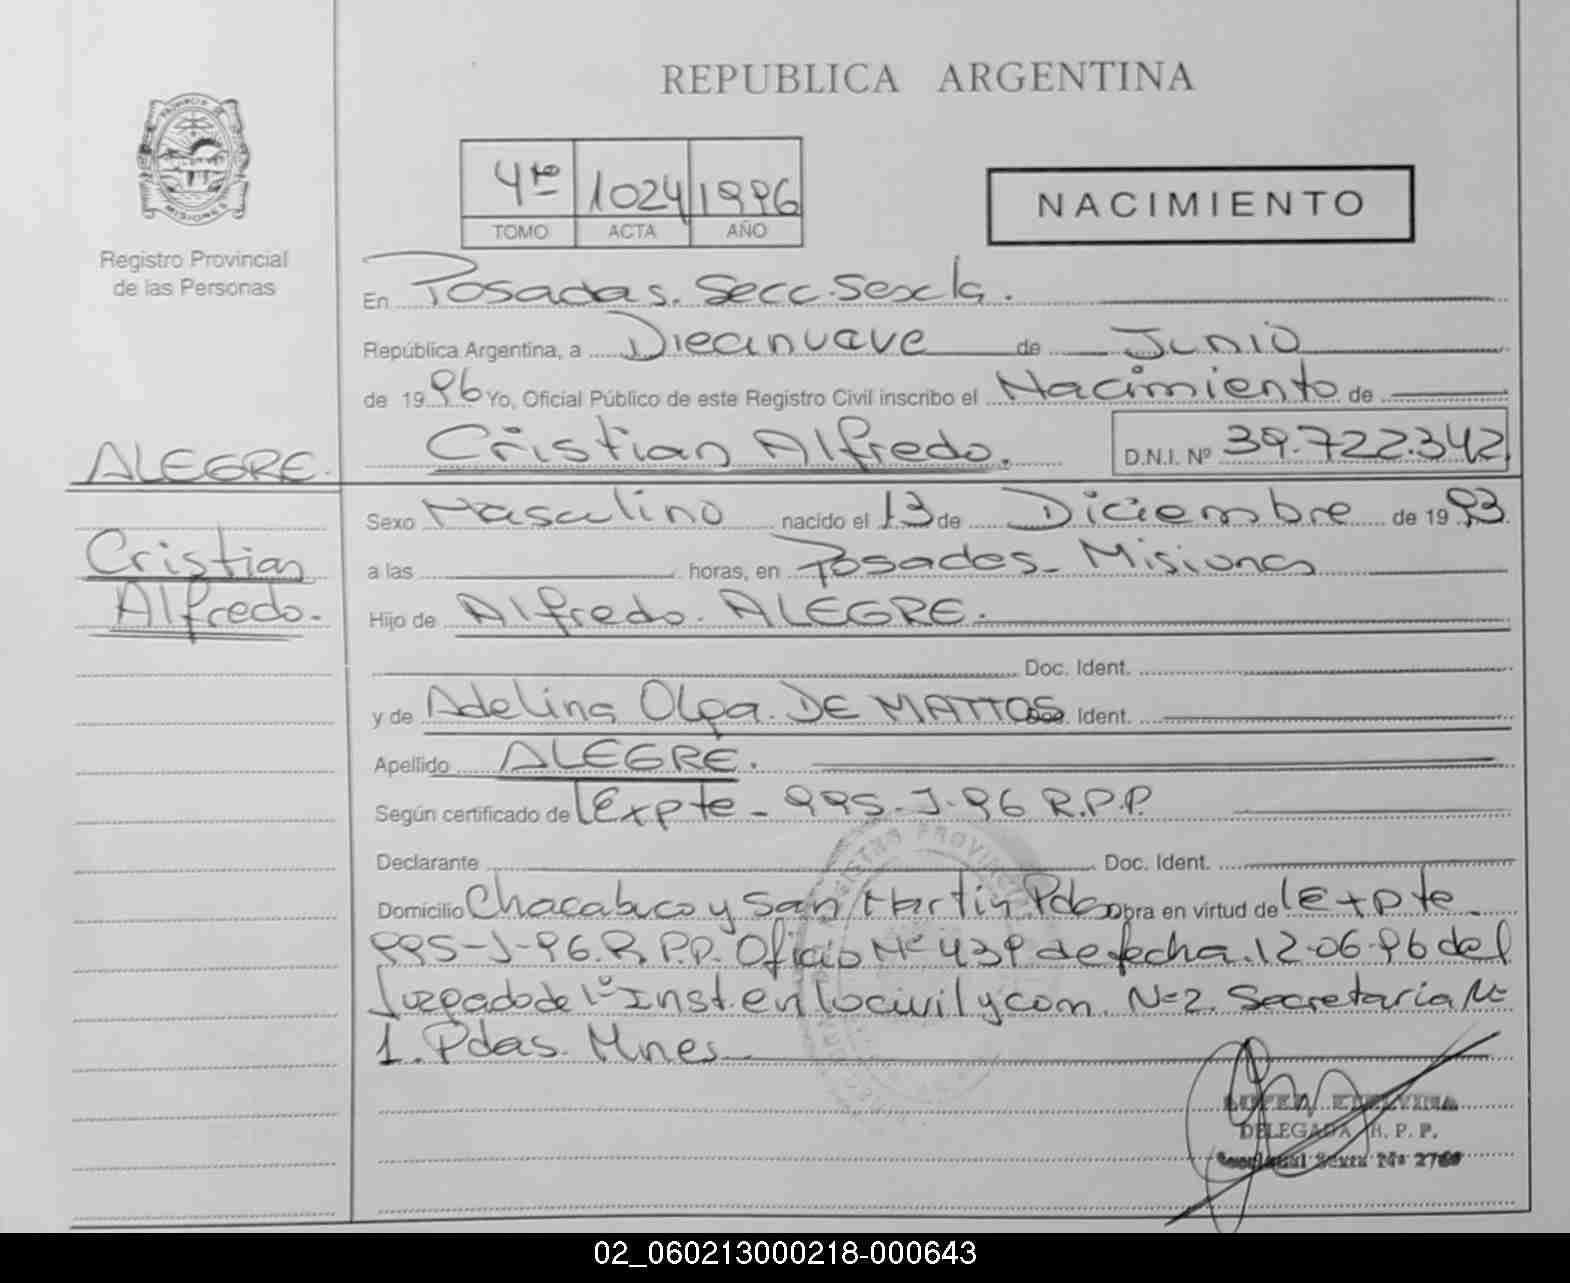 REPUBLICA ARGENTINA
4to 1024 1996
TOMO ACTA AÑO
NACIMIENTO
PROVINCIA DE
MISIONES
Registro Provincial
de las Personas
En Posadas. Secc. Sexta.
República Argentina, a Diecinueve de Junio
de 1996 Yo, Oficial Público de este Registro Civil inscribo el Nacimiento de
Cristian Alfredo. D.N.I. Nº 39.722.342
ALEGRE.
Cristian
Alfredo.
Sexo Masculino nacido el 13 de Diciembre de 1993.
a las horas, en Posadas - Misiones
Hijo de Alfredo. ALEGRE.
Doc. Ident.
y de Adelina Olga. DE MATTOS Doc. Ident.
Apellido ALEGRE.
Según certificado de Expte - 995-J-96 R.P.P.
Declarante Doc. Ident.
Domicilio Chacabuco y San Martin Pdas Obra en virtud de Expte
995-J-96. R.P.P. Oficio Nº 439 de fecha. 12-06-96 del
Juzgado de 1º Inst. en lo civil y com. Nº 2. Secretaria Nº
1. Pdas. Mnes
REGISTRO PROVINCIAL
DELEGADA R. P. P.
Seccional Sexta Nº
02_060213000218-000643